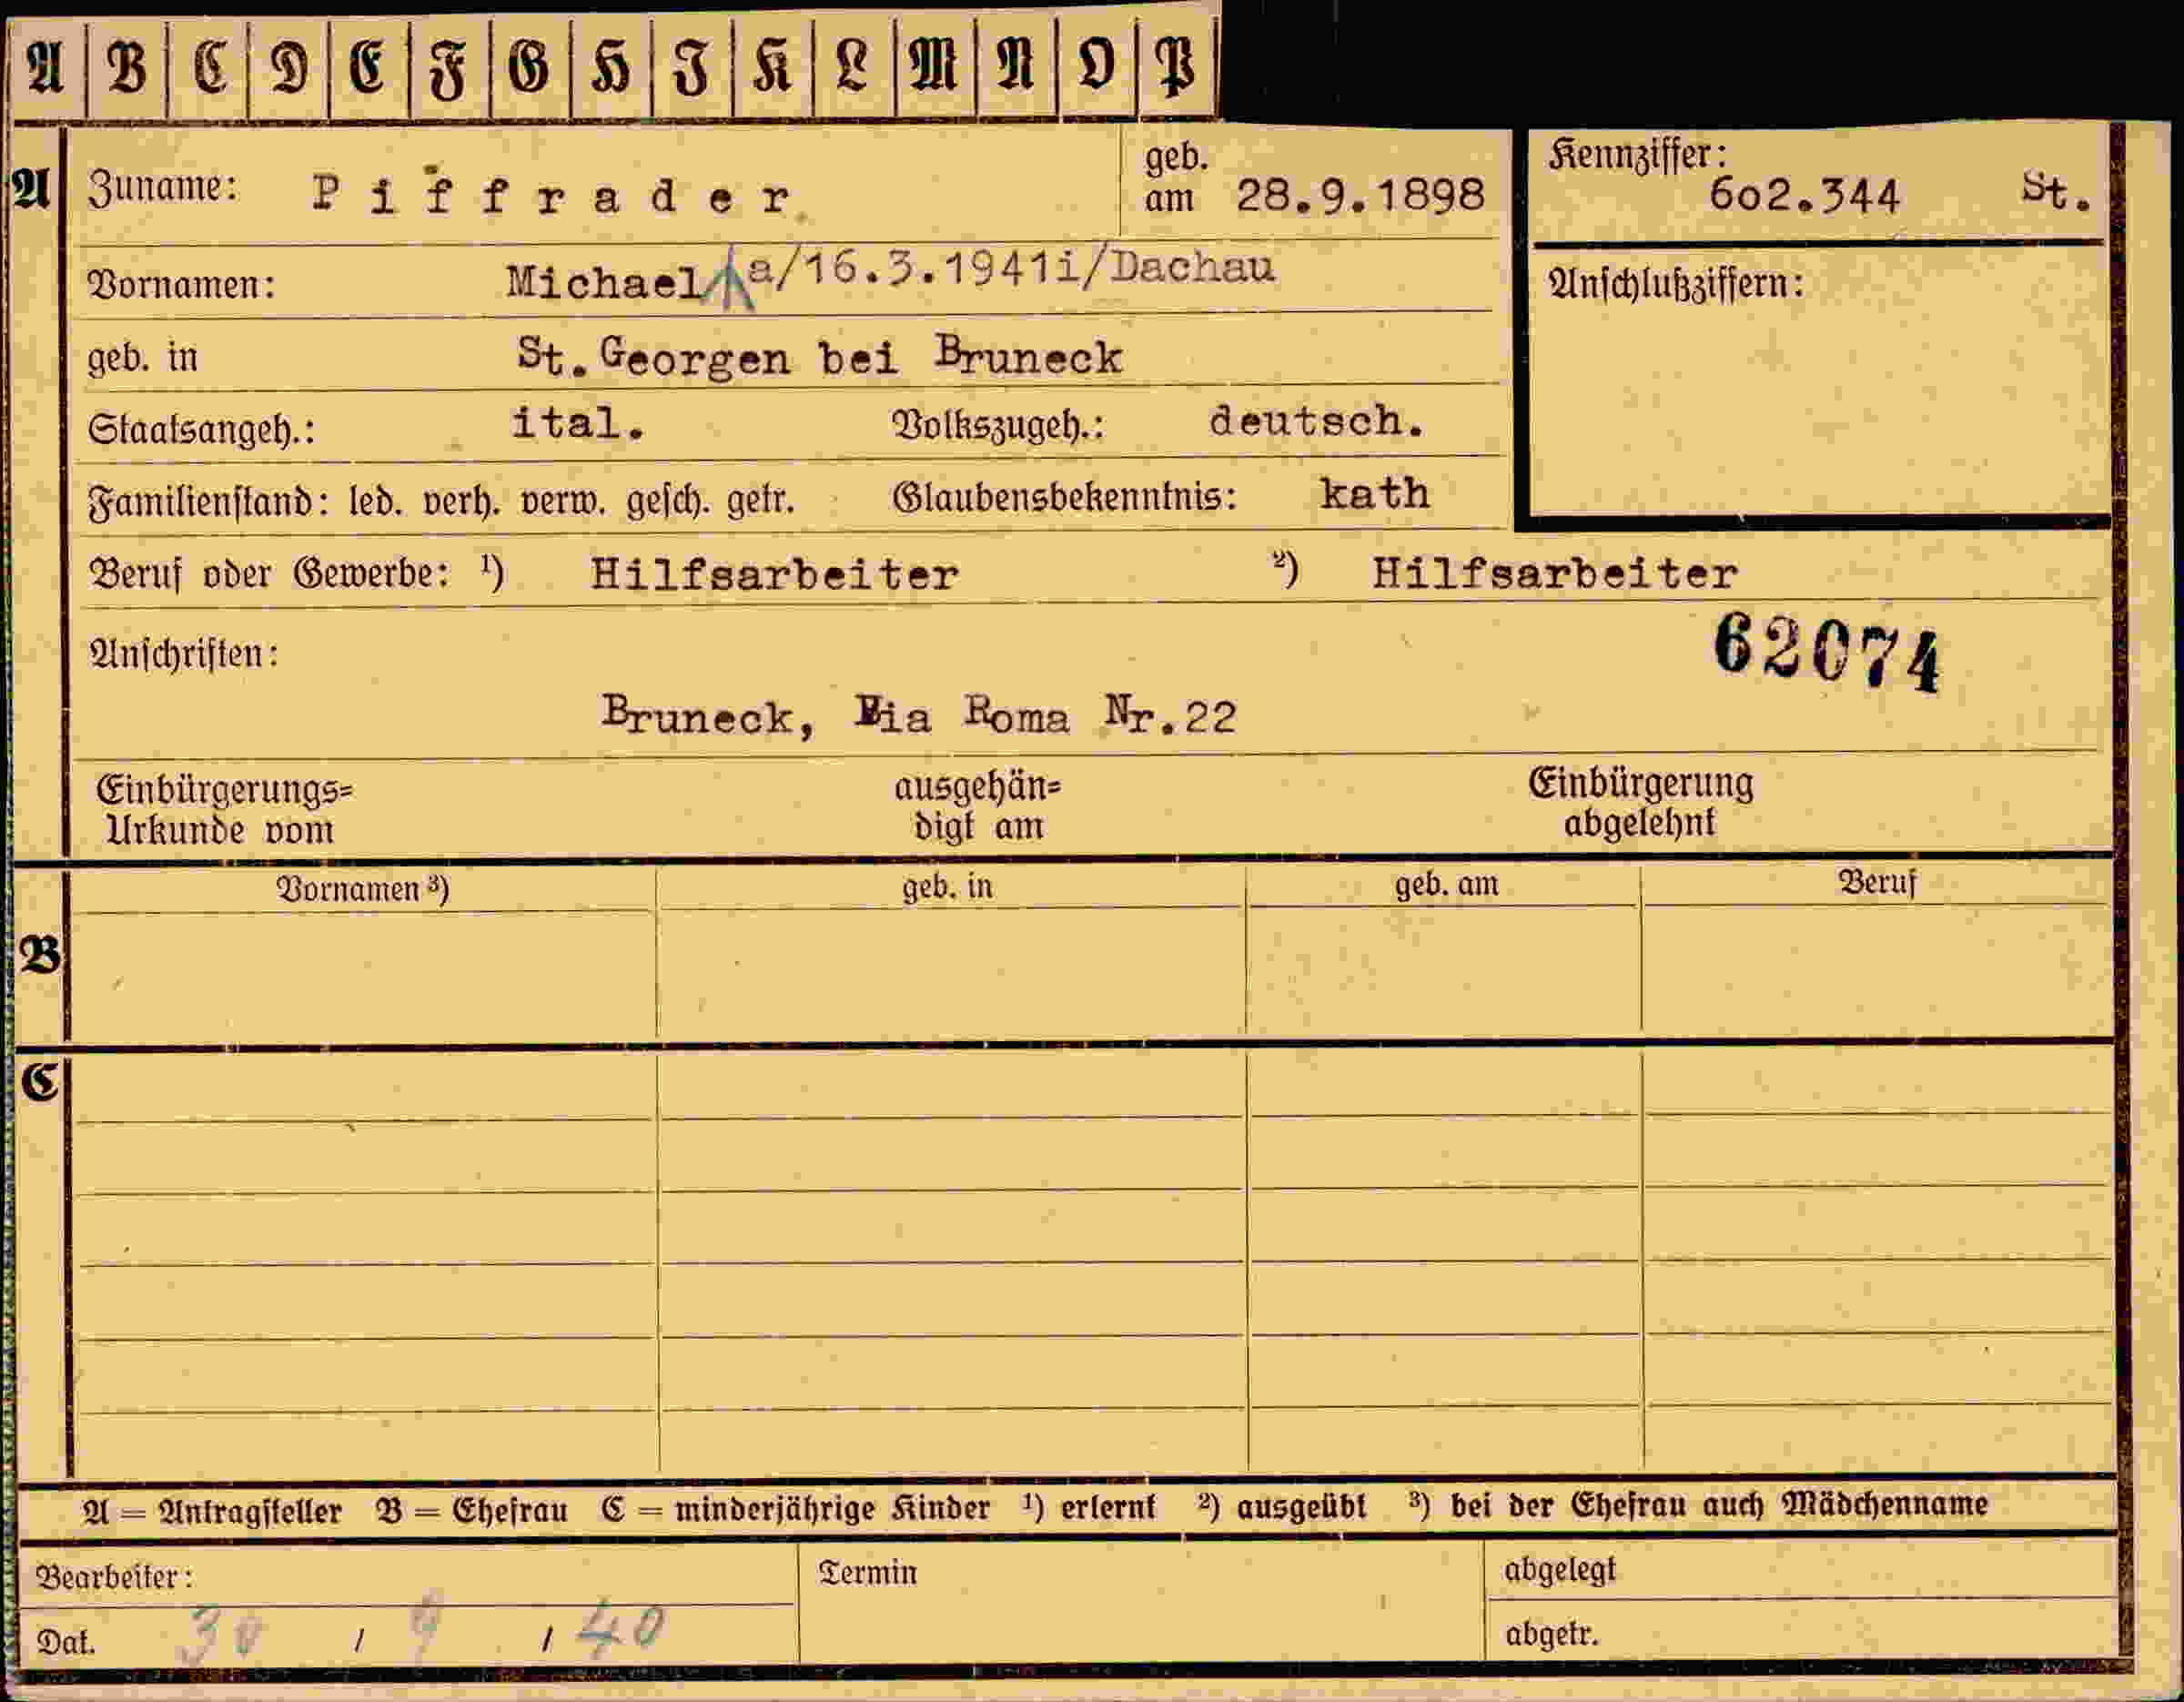 A B C D E F G H J K L M N O P
A Zuname: Piffrader geb. am 28.9.1898 Kennziffer: 602.344 St.
Vornamen: Michael a/16.3.1941i/Dachau Anschlußziffern:
geb. in St.Georgen bei Bruneck
Staatsangeh.: ital. Volkszugeh.: deutsch.
Familienstand: led. verh. verw. gesch. getr. Glaubensbekenntnis: kath
Beruf oder Gewerbe: ¹) Hilfsarbeiter ²) Hilfsarbeiter
Anschriften: 62074
Bruneck, Via Roma Nr.22
Einbürgerungs= ausgehän= Einbürgerung
Urkunde vom digt am abgelehnt
B Vornamen ³) geb. in geb. am Beruf
C
A = Antragsteller B = Ehefrau C = minderjährige Kinder ¹) erlernt ²) ausgeübt ³) bei der Ehefrau auch Mädchenname
Bearbeiter: Termin abgelegt
Dat. 30 / 9 / 40 abgetr.